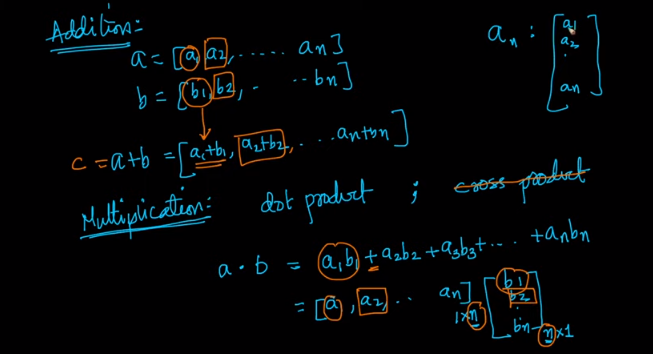 Addition:
a = [a1, a2, ..... an]
b = [b1, b2, . .. bn]
c = a+b = [a1+b1, a2+b2, ... an+bn]
an : [a1
a2
.
an]
Multiplication: dot product ; cross product
a . b = a1b1 + a2b2 + a3b3 + .... + anbn
= [a, a2, .. an] 1×n [b1
b2
.
bn] n×1